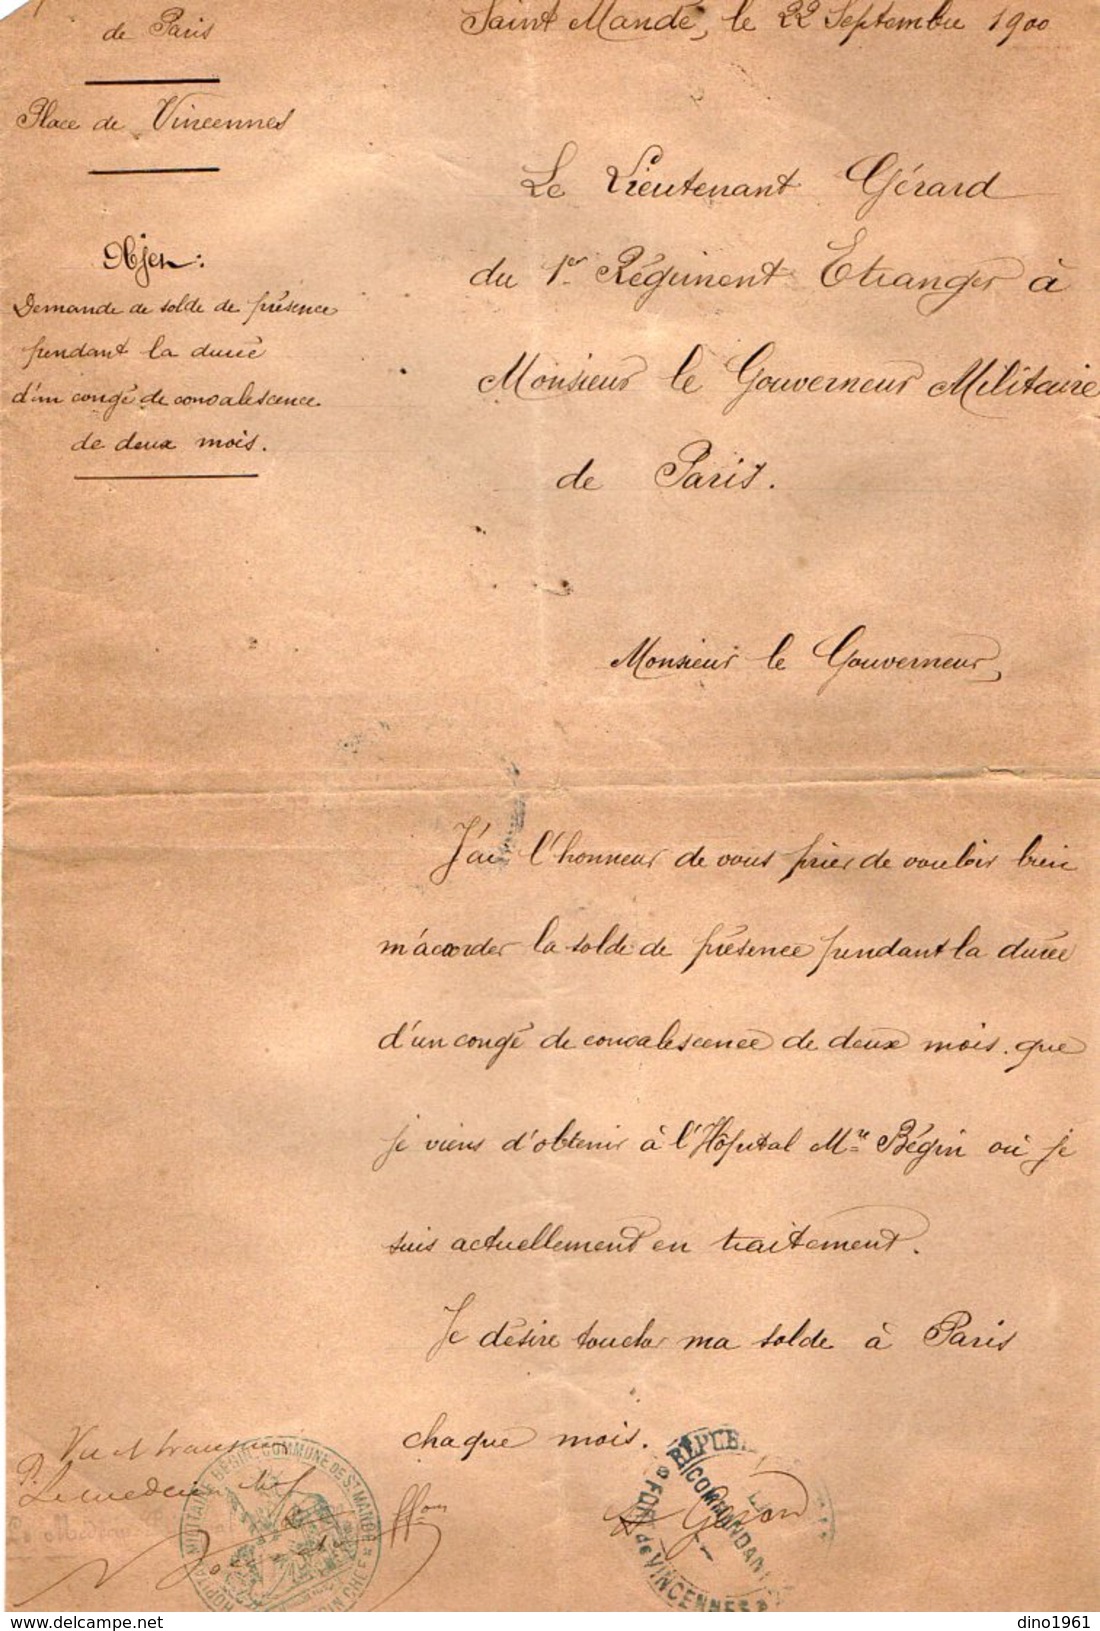 de Paris
Place de Vincennes
Objet:
Demande de solde de présence
pendant la durée
d'un congé de convalescence
de deux mois.
Saint Mandé, le 22 Septembre 1900
Le Lieutenant Gérard
du 1er Régiment Etranger à
Monsieur le Gouverneur Militaire
de Paris.
Monsieur le Gouverneur,
J'ai l'honneur de vous prier de vouloir bien
m'accorder la solde de présence pendant la durée
d'un congé de convalescence de deux mois que
je viens d'obtenir à l'Hôpital Mre Bégin où je
suis actuellement en traitement.
Je désire toucher ma solde à Paris
chaque mois.
Vu et transmis
P. Le médecin chef
HOPITAL MILITAIRE BEGIN COMMUNE DE ST MANDÉ
MEDECIN CHEF
Gérard
REPUBL
COMMANDANT
FORT de VINCENNES
dino1961